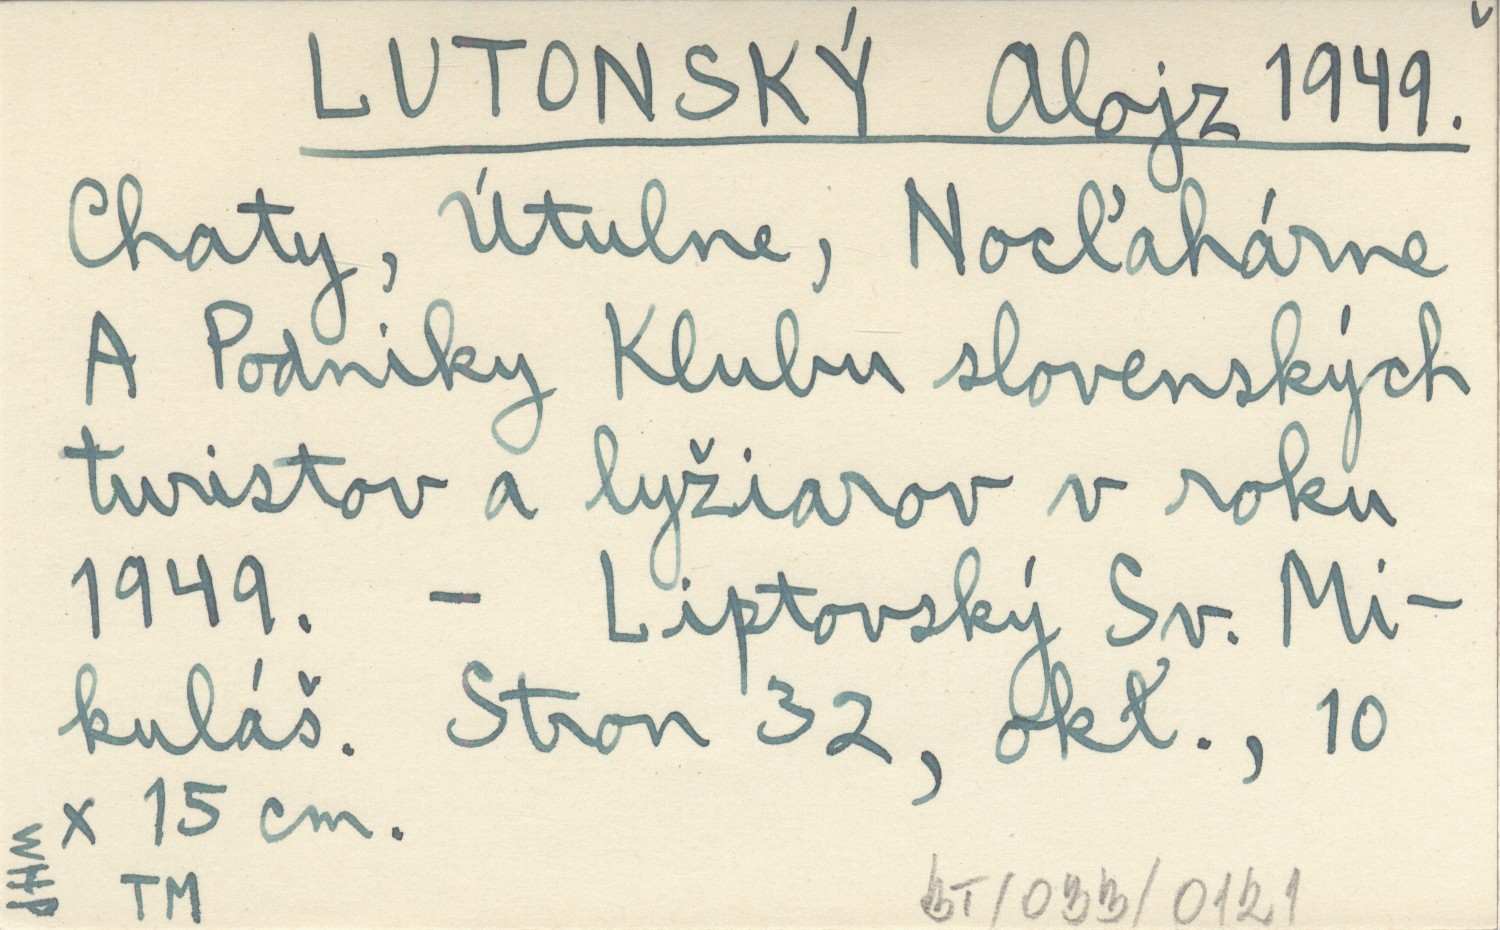 LUTONSKÝ Alojz 1949.
Chaty, Útulne, Nocľahárne
A Podniky Klubu slovenských
turistov a lyžiarov v roku
1949. - Liptovský Sv. Mi-
kuláš. Stron 32, okł., 10
x 15 cm.
WHP
TM
BT/033/0121